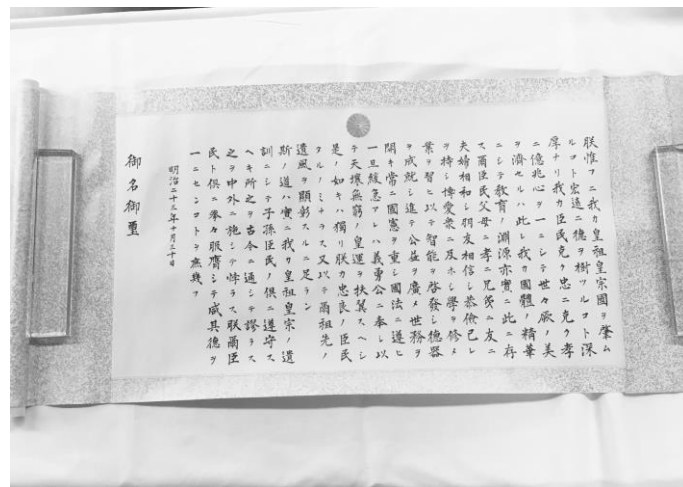 朕惟フニ我カ皇祖皇宗國ヲ肇ム
ルコト宏遠ニ德ヲ樹ツルコト深
厚ナリ我カ臣民克ク忠ニ克ク孝
ニ億兆心ヲ一ニシテ世々厥ノ美
ヲ濟セルハ此レ我カ國體ノ精華
ニシテ教育ノ淵源亦實ニ此ニ存
ス爾臣民父母ニ孝ニ兄弟ニ友ニ
夫婦相和シ朋友相信シ恭儉己レ
ヲ持シ博愛衆ニ及ホシ學ヲ修メ
業ヲ習ヒ以テ智能ヲ啓發シ德器
ヲ成就シ進テ公益ヲ廣メ世務ヲ
開キ常ニ國憲ヲ重シ國法ニ遵ヒ
一旦緩急アレハ義勇公ニ奉シ以
テ天壤無窮ノ皇運ヲ扶翼スヘシ
是ノ如キハ獨リ朕カ忠良ノ臣民
タルノミナラス又以テ爾祖先ノ
遺風ヲ顯彰スルニ足ラン
斯ノ道ハ實ニ我カ皇祖皇宗ノ遺
訓ニシテ子孫臣民ノ俱ニ遵守ス
ヘキ所之ヲ古今ニ通シテ謬ラス
之ヲ中外ニ施シテ悖ラス朕爾臣
民ト俱ニ拳々服膺シテ咸其德ヲ
一ニセンコトヲ庶幾フ
明治二十三年十月三十日
御名御璽